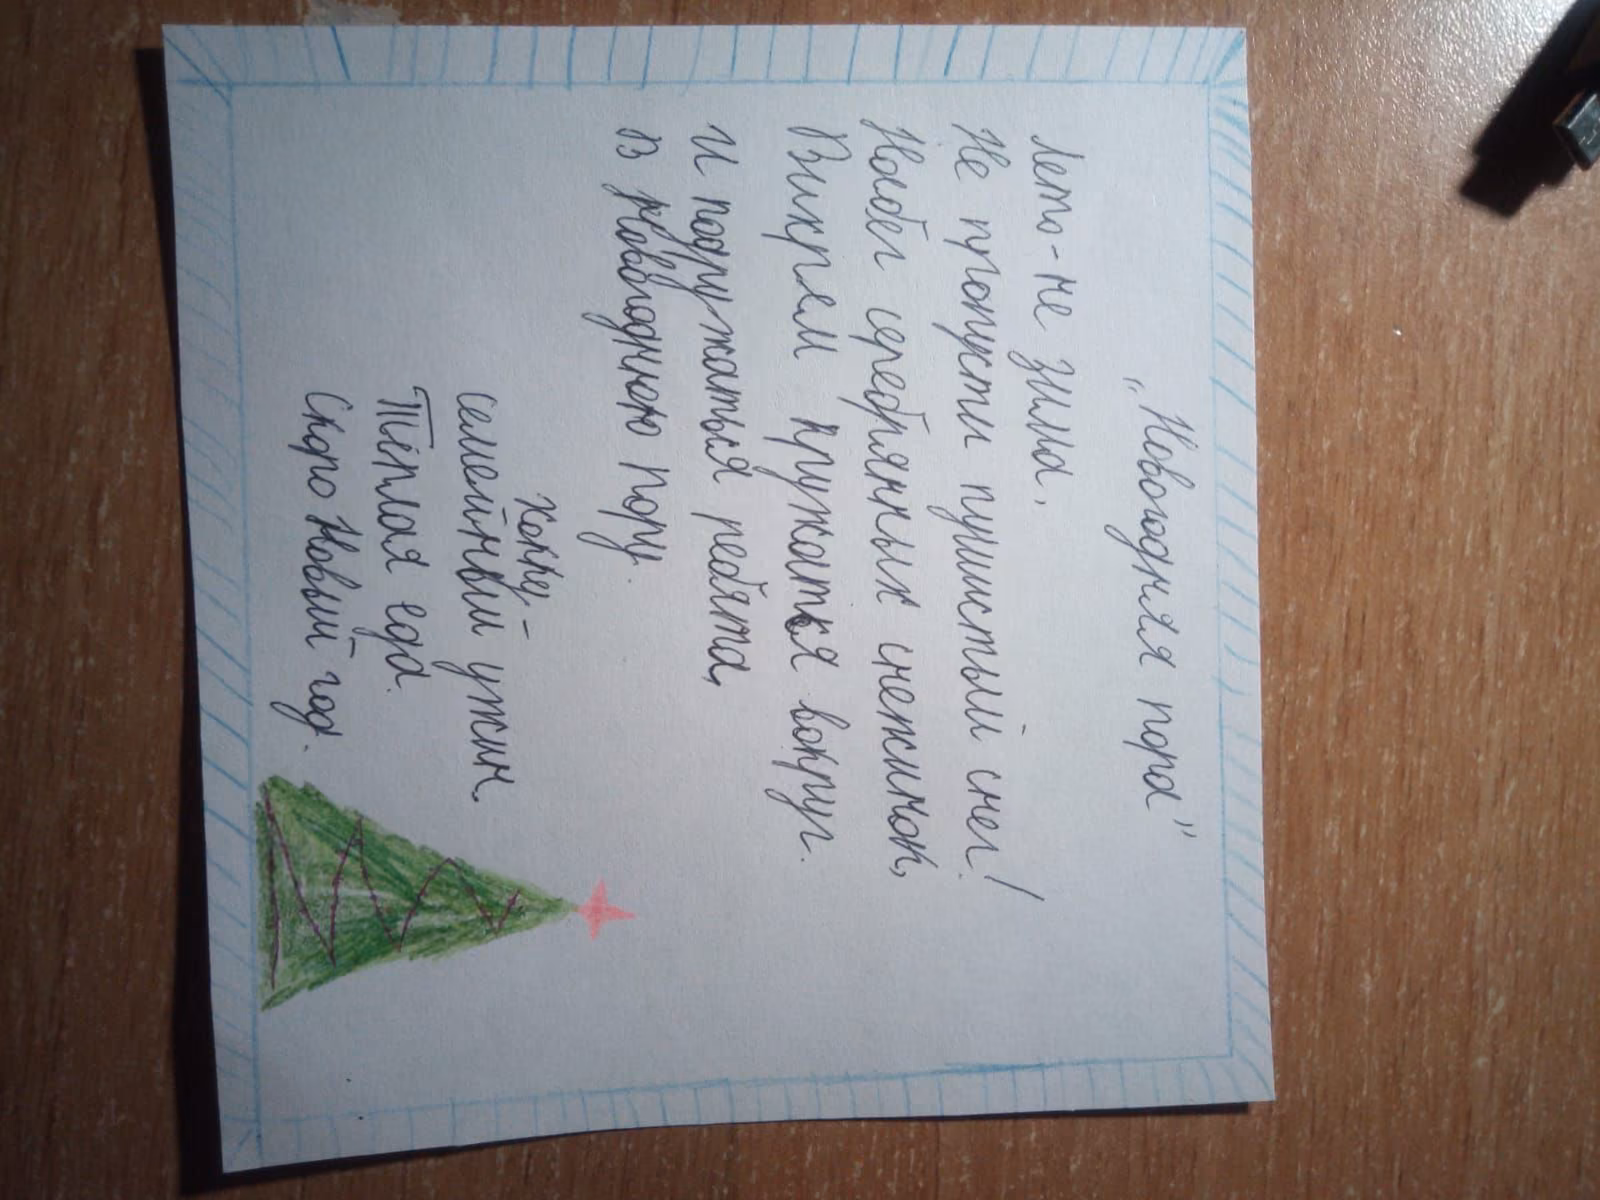 „Новогодняя пора”
Лето - не зима,
Не пропусти пушистый снег!
Набег серебрянных снежинок,
Вихрем кружаться вокруг.
И подружаться ребята,
В новогоднюю пору.
Хокку -
семейный ужин.
Тёплая еда.
Скоро Новый год.